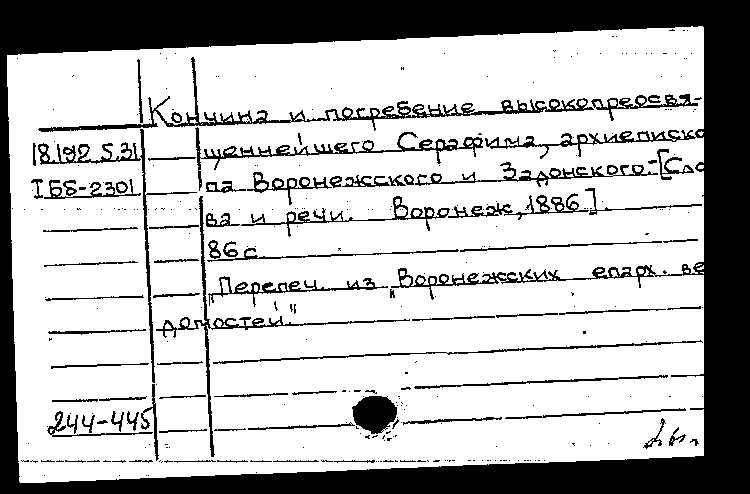 Кончина и погребение высокопреосвя-
18.192.5.31 щеннейшего Серафима, архиеписко
I ББ-2301 па Воронежского и Задонского.-[Сло
ва и речи. Воронеж, 1886].
86 с
"Перепеч. из "Воронежских епарх. ве
домостей."
244-445